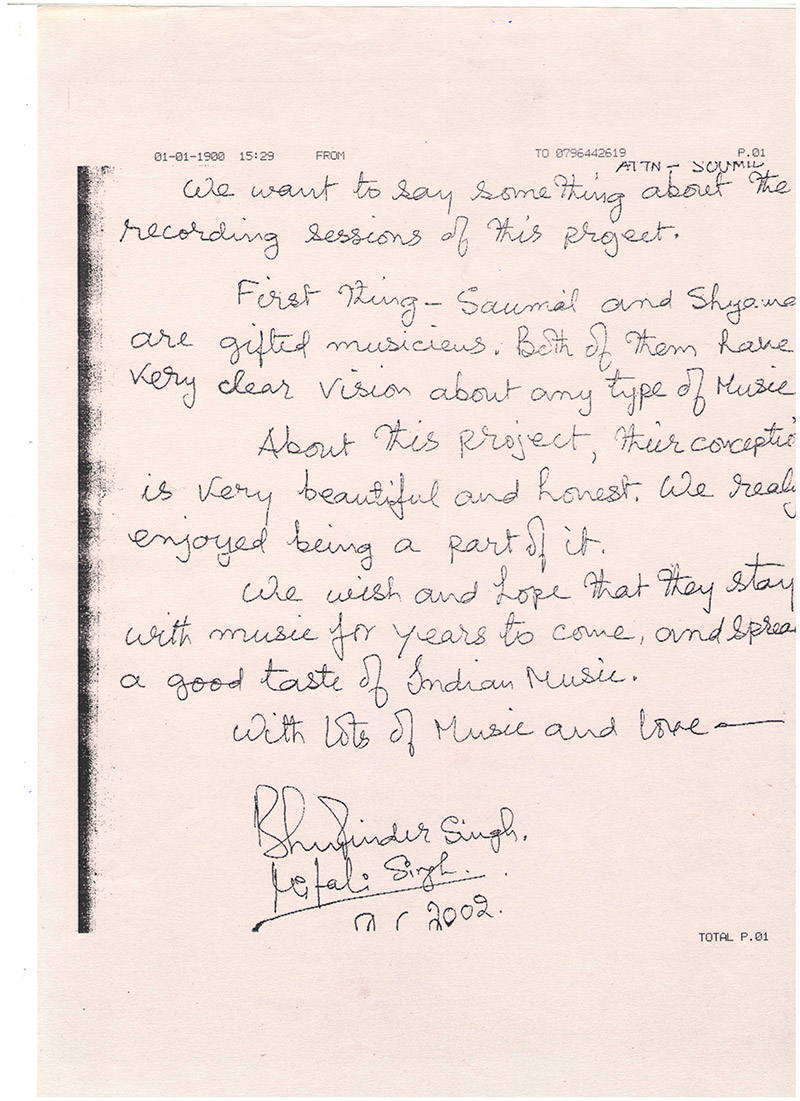 01-01-1900 15:29 FROM TO 0796442619 P.01
ATTN - SOUMIL
We want to say something about the
recording sessions of this project.
First thing - Saumil and Shyama
are gifted musiciens. Both of them have
very clear vision about any type of Music
About this project, their conceptio
is very beautiful and honest. We realy
enjoyed being a part of it.
We wish and hope that they stay
with music for years to come, and sprea
a good taste of Indian Music.
With lots of Music and love —
Bhupinder Singh.
Mitali Singh.
2002.
TOTAL P.01